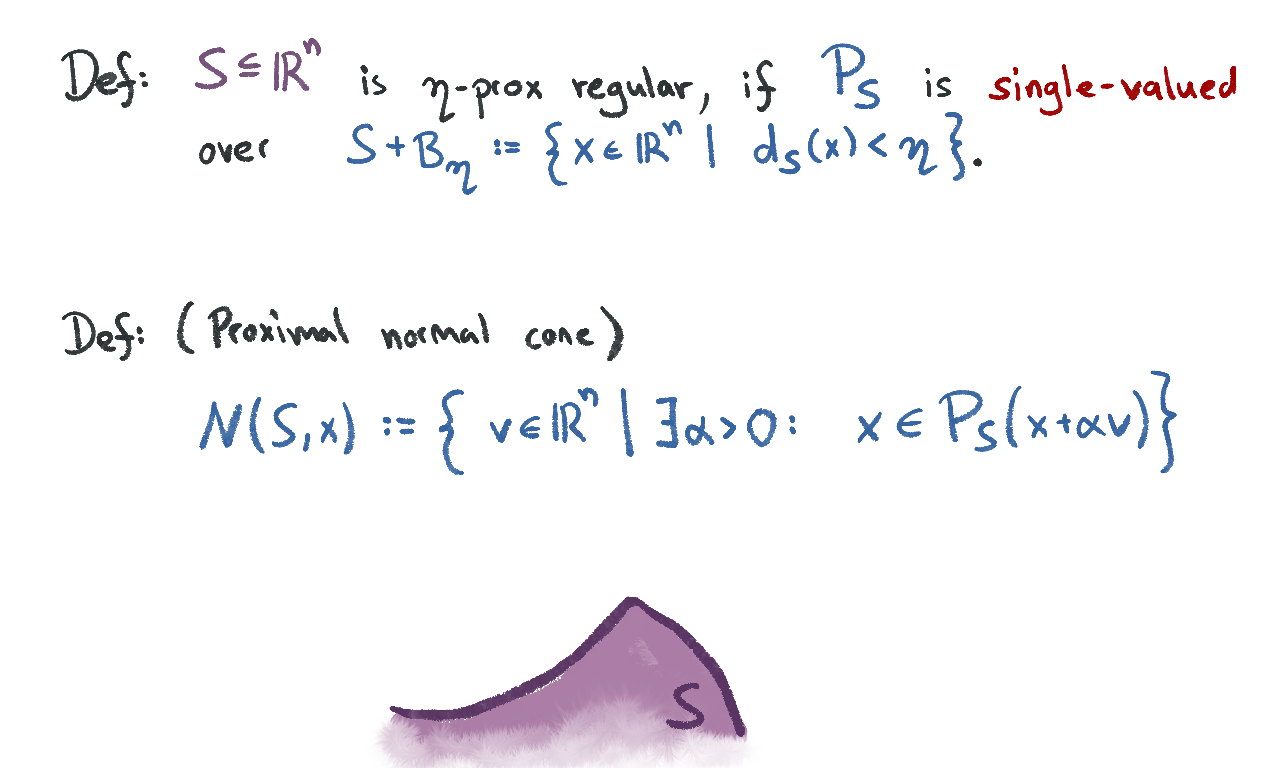 Def: S ⊆ ℝⁿ is η-prox regular, if P_S is single-valued
over S + B_η := { x ∈ ℝⁿ | d_S(x) < η }.
Def: (Proximal normal cone)
N(S,x) := { v ∈ ℝⁿ | ∃α > 0: x ∈ P_S(x+αv) }
S